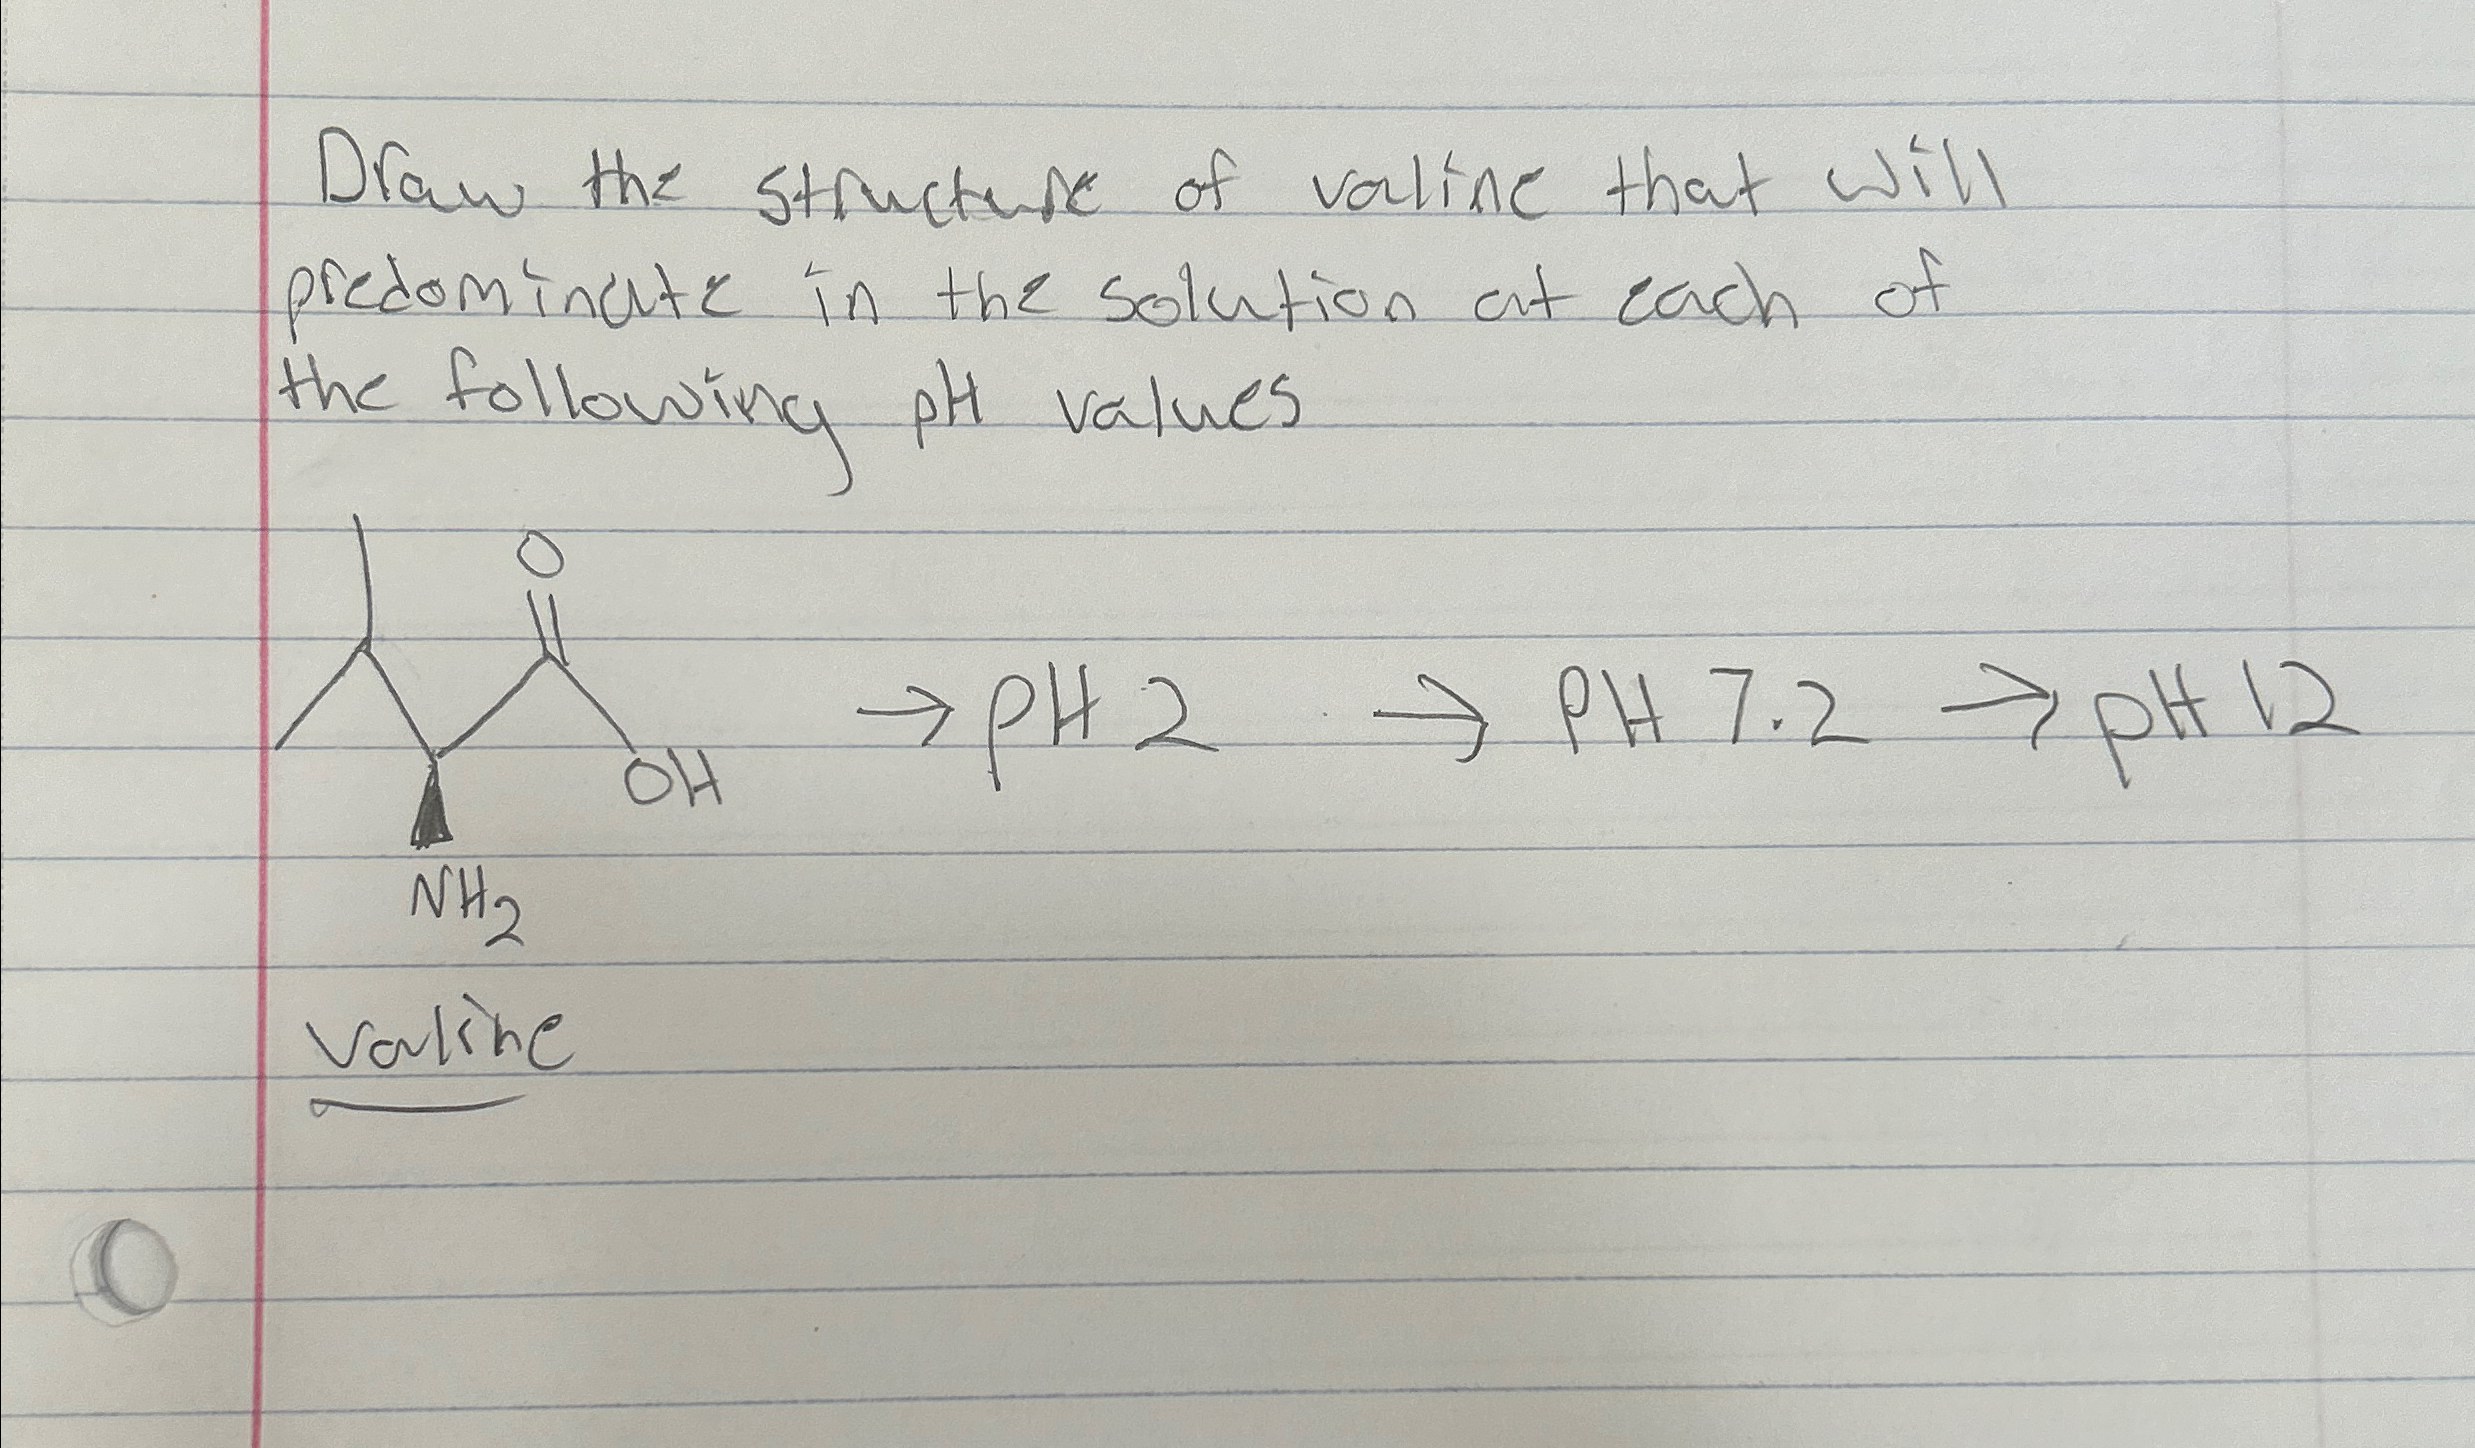 Draw the structure of valine that will
predominate in the solution at each of
the following pH values
O
→ pH 2 → PH 7.2 → pH 12
OH
NH2
Valine